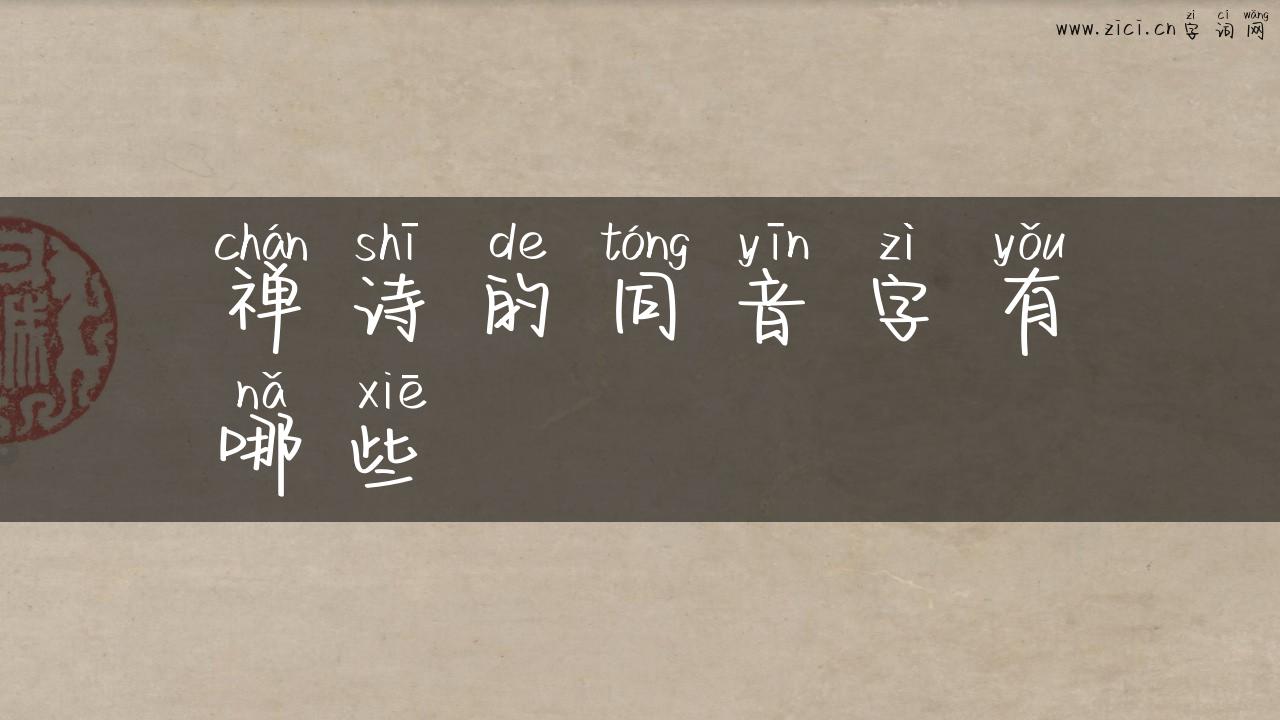 zì cí wǎng
www.zici.cn字词网
chán shī de tóng yīn zì yǒu
禅诗的同音字有
nǎ xiē
哪些